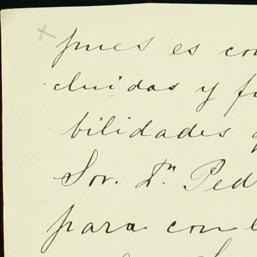 pues es con
cluidas y fi
bilidades q
Sor. Dn Ped
para con l